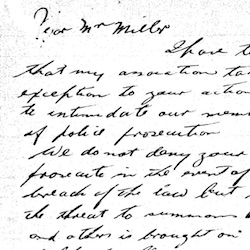 Dear Mr Miller
I have t
that my association ta
exception to your action
to intimidate our mem
of police prosecution
We do not deny your
prosecute in the event of
breach of the law but
the threat to summons
and others is brought on